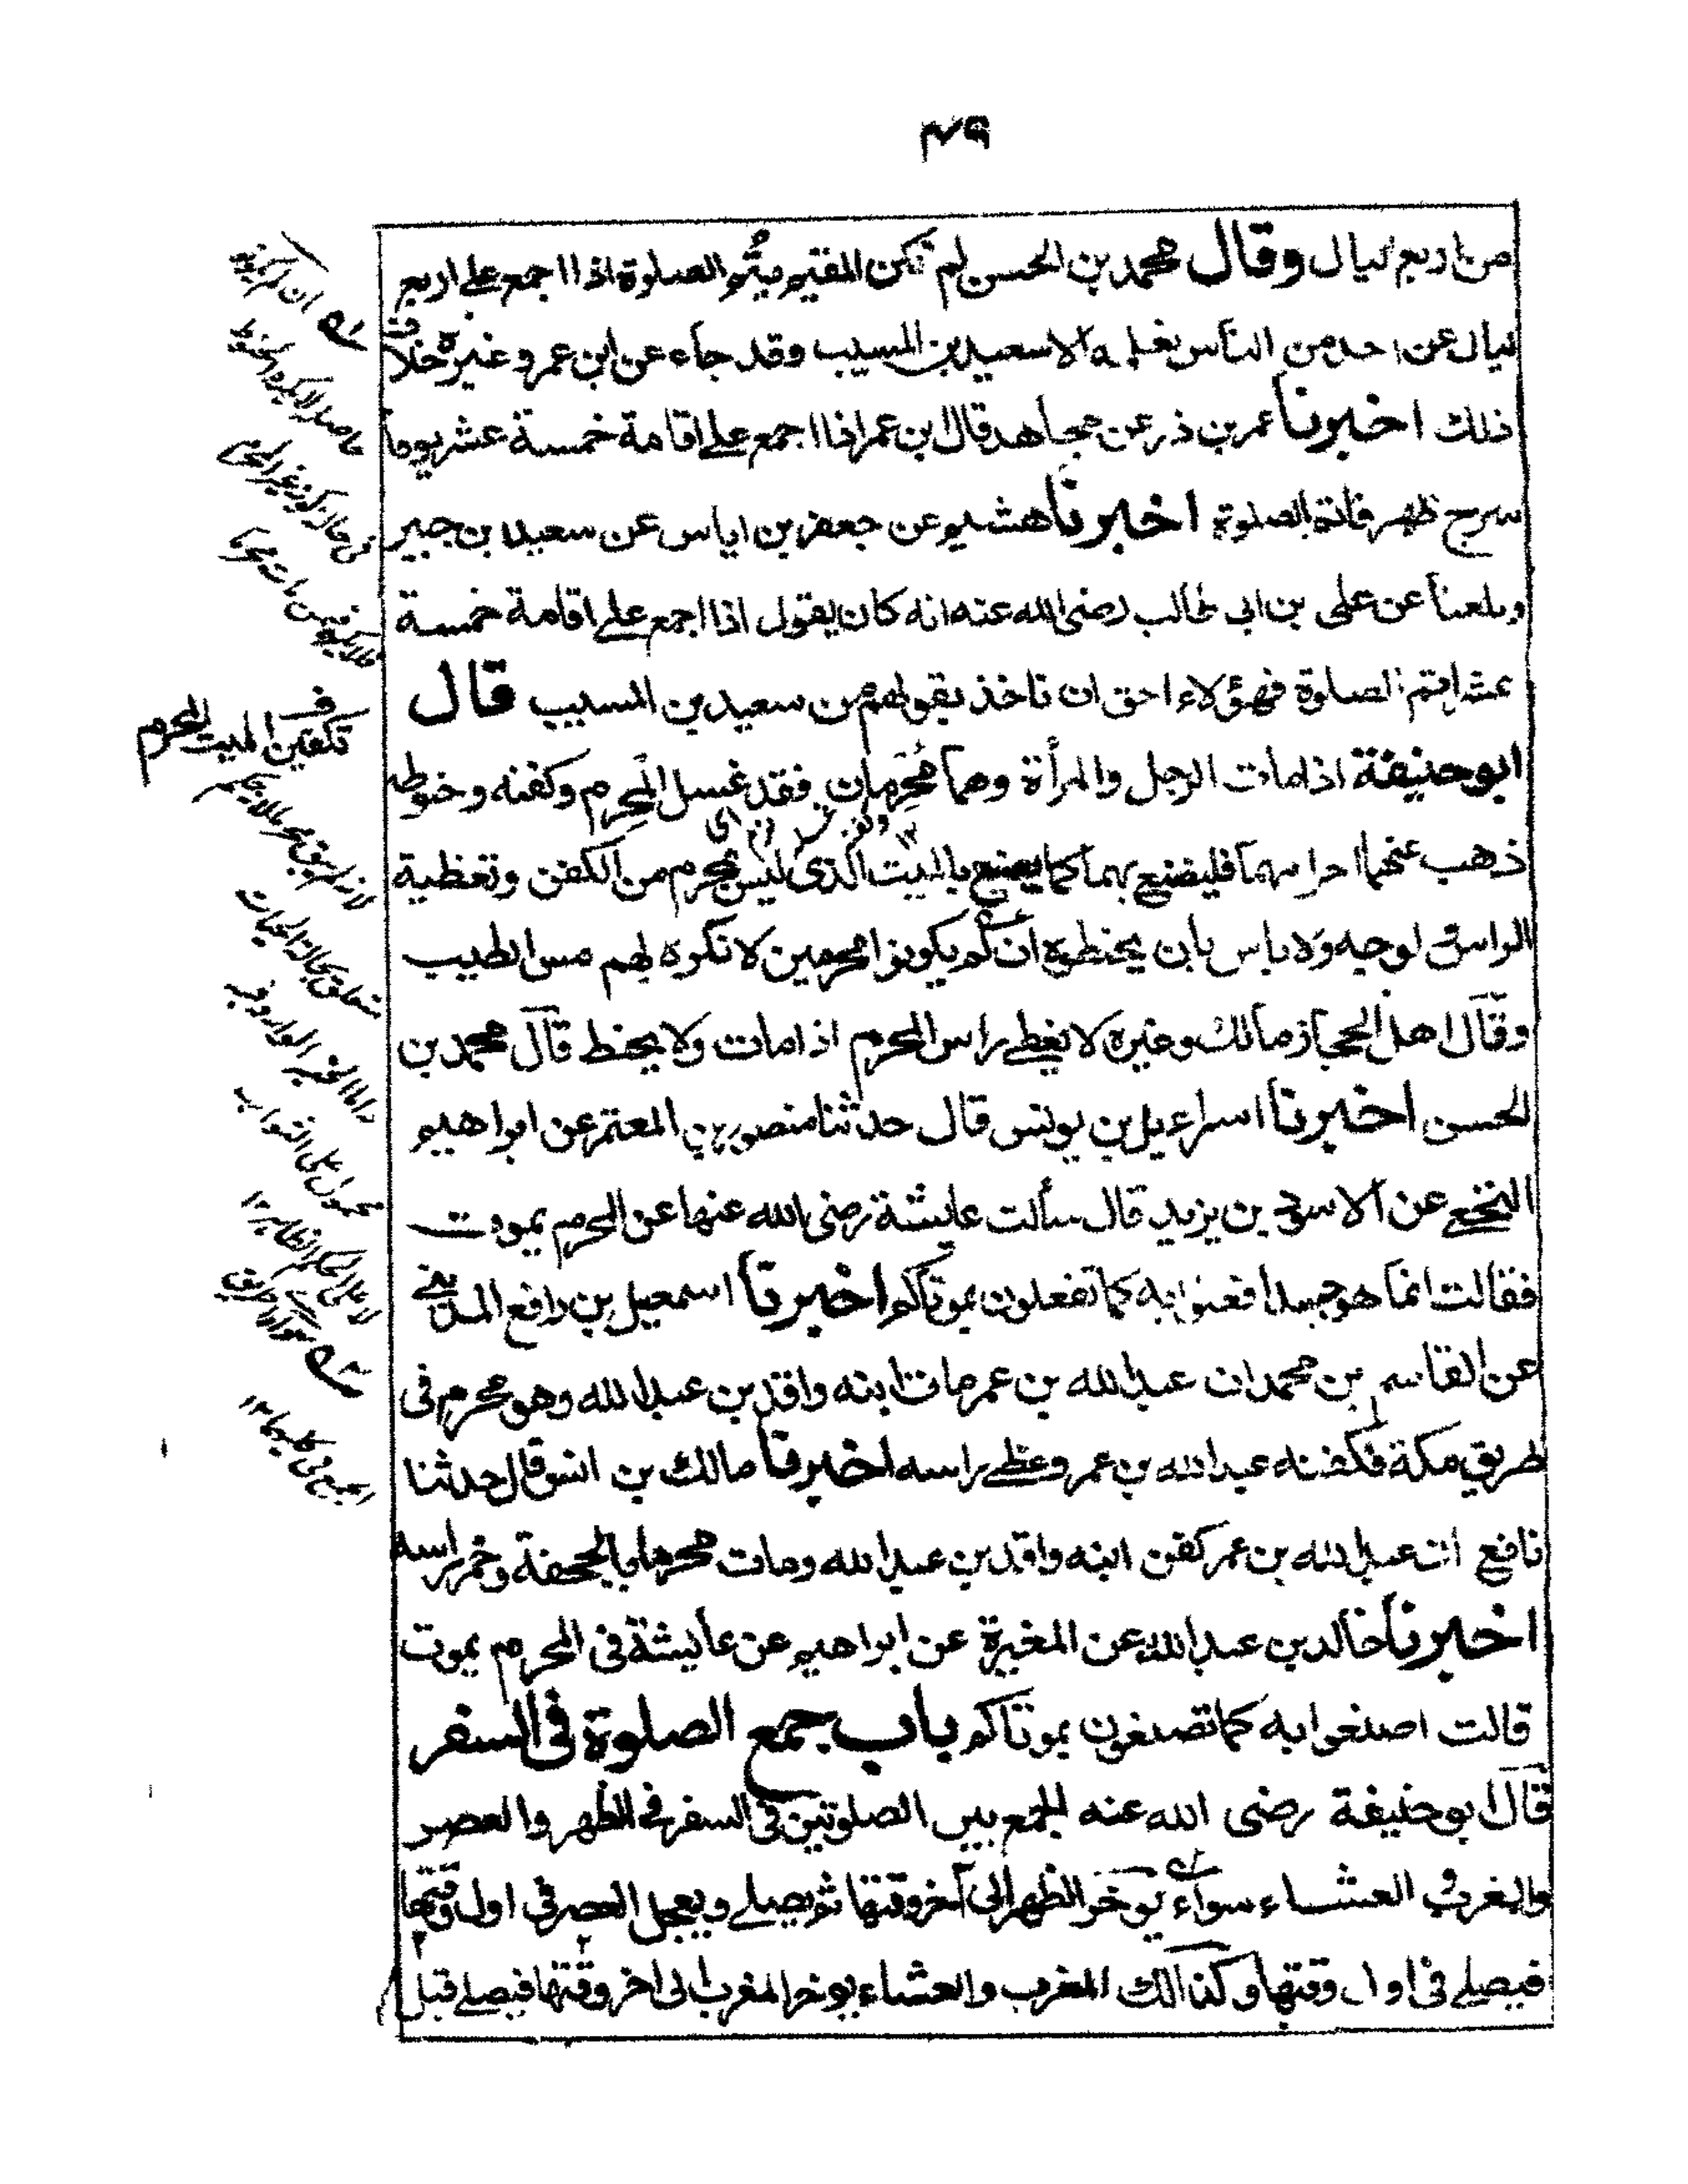 ٤٩
من اربع ليال وقال محمد بن الحسن لم تكن المقيم يتم الصلوة اذا اجمع على اربع
ليال عن احد من الناس نعلمه الا سعيد بن المسيب وقد جاء عن ابن عمر وغيره خلاف
ذلك اخبرنا عمر بن ذر عن مجاهد قال ابن عمر اذا اجمع على اقامة خمسة عشر يوما
سرح ظهره فاتم الصلوة اخبرنا هشيم عن جعفر بن اياس عن سعيد بن جبير
وبلغنا عن على بن ابى طالب رضى الله عنه انه كان يقول اذا اجمع على اقامة خمسة
عشر اتم الصلوة فهؤلاء احق ان ناخذ بقولهم من سعيد بن المسيب قال
ابو حنيفة اذا مات الرجل والمرأة وهما مُحْرِمان فقد غسل المحرم وكفنه وحنوطه
ذهب عنهما احرامهما فليصنع بهما كما يصنع بالميت الذى ليس بمحرم من الكفن وتغطية
الراس والوجه ولا باس بان يحنطوه ان لم يكونوا محرمين لا نكره لهم مس الطيب
وقال اهل الحجاز مالك وغيره لا يغطى راس المحرم اذا مات ولا يحنط قال محمد بن
الحسن اخبرنا اسراعيل بن يونس قال حدثنا منصور بن المعتمر عن ابراهيم
النخعى عن الاسود بن يزيد قال سألت عايشة رضى الله عنها عن المحرم يموت
فقالت انما هو جسد افعلوا به كما تفعلون بموتاكم اخبرنا اسمعيل بن رافع المدينى
عن القاسم بن محمد ان عبد الله بن عمر مات ابنه واقد بن عبد الله وهو محرم فى
طريق مكة فكفنه عبد الله بن عمر وغطى راسه اخبرنا مالك بن انس قال حدثنا
نافع ان عبد الله بن عمر كفن ابنه واقد بن عبد الله ومات محرما بالجحفة وخمر راسه
اخبرنا خالد بن عبد الله عن المغيرة عن ابراهيم عن عايشة فى المحرم يموت
قالت اصنعوا به كما تصنعون بموتاكم باب جمع الصلوة فى السفر
قال ابو حنيفة رضى الله عنه الجمع بين الصلوتين فى السفر فى الظهر والعصر
والمغرب والعشاء سواء يوخر الظهر الى آخر وقتها ثم يصلى ويعجل العصر فى اول وقتها
فيصلى فى اول وقتها وكذالك المغرب والعشاء يوخر المغرب الى اخر وقتها فيصلى قبل
ف
تكفين الميت المحرم